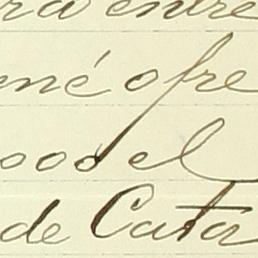 ra entre
ené ofre
sood el
de Cata